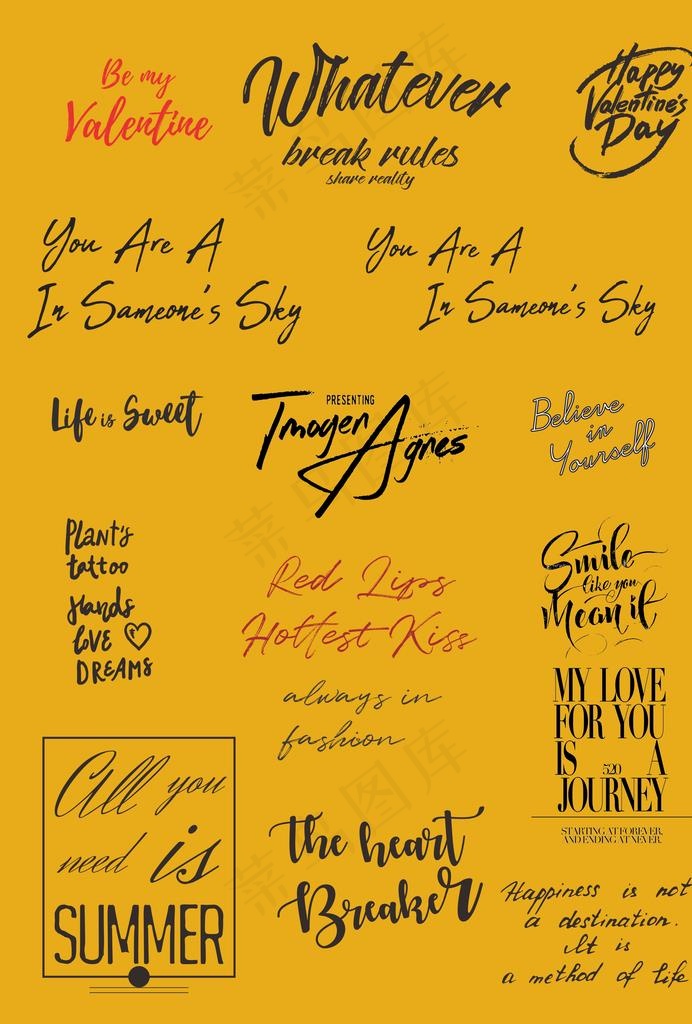 Be my
Valentine
Whatever
break rules
share reality
Happy
Valentine's
Day
You Are A
In Sameone's Sky
You Are A
In Sameone's Sky
Life is Sweet
PRESENTING
Imogen
Agnes
Believe
in
Yourself
PLANT'S
tattoo
Hands
LOVE
DREAMS
Red Lips
Hottest Kiss
always in
fashion
Smile
like you
Mean it
MY LOVE
FOR YOU
IS 520 A
JOURNEY
STARTING AT FOREVER,
AND ENDING AT NEVER.
All you
need is
SUMMER
the heart
Breaker
Happiness is not
a destination.
It is
a method of life
菜鸟图库
菜鸟图库
菜鸟图库